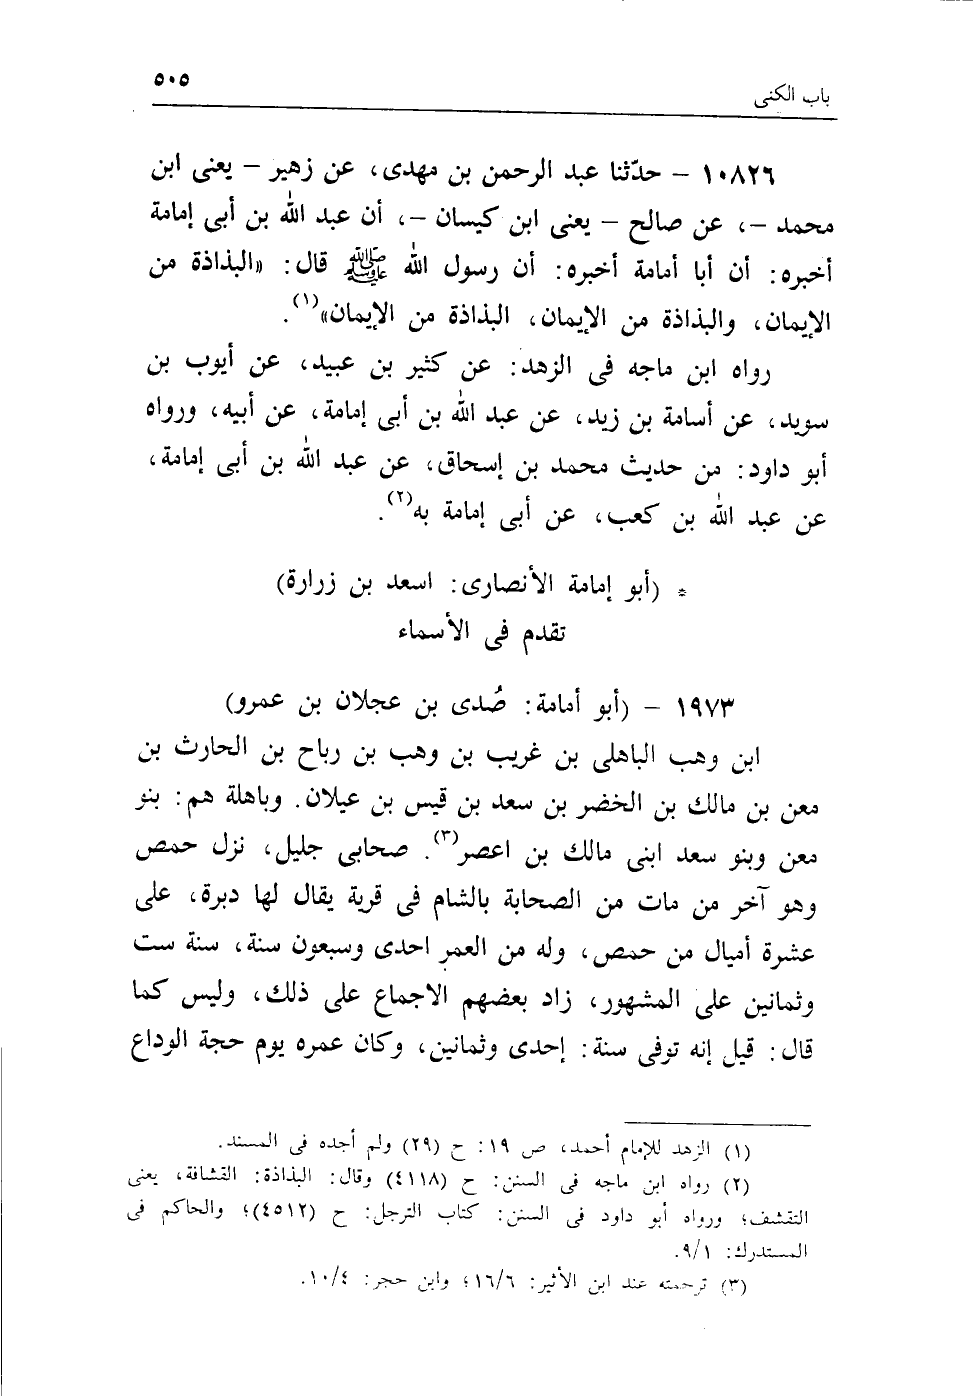 باب الكنى
٥٠٥
١٠٨٢٦ – حدّثنا عبد الرحمن بن مهدى، عن زهير – يعنى ابن
محمد –، عن صالح – يعنى ابن كيسان –، أن عبد الله بن أبى إمامة
أخبره: أن أبا أمامة أخبره: أن رسول الله ﷺ قال: «البذاذة من
الإيمان، والبذاذة من الإيمان، البذاذة من الإيمان»(١).
رواه ابن ماجه فى الزهد: عن كثير بن عبيد، عن أيوب بن
سويد، عن أسامة بن زيد، عن عبد الله بن أبى إمامة، عن أبيه، ورواه
أبو داود: من حديث محمد بن إسحاق، عن عبد الله بن أبى إمامة،
عن عبد الله بن كعب، عن أبى إمامة به(٢).
* (أبو إمامة الأنصارى: اسعد بن زرارة)
تقدم فى الأسماء
١٩٧٣ – (أبو أمامة: صُدى بن عجلان بن عمرو)
ابن وهب الباهلى بن غريب بن وهب بن رباح بن الحارث بن
معن بن مالك بن الخضر بن سعد بن قيس بن عيلان. وباهلة هم: بنو
معن وبنو سعد ابنى مالك بن اعصر(٣). صحابى جليل، نزل حمص
وهو آخر من مات من الصحابة بالشام فى قرية يقال لها دبرة، على
عشرة أميال من حمص، وله من العمر احدى وسبعون سنة، سنة ست
وثمانين على المشهور، زاد بعضهم الاجماع على ذلك، وليس كما
قال: قيل إنه توفى سنة: إحدى وثمانين، وكان عمره يوم حجة الوداع
(١) الزهد للإمام أحمد، ص ١٩: ح (٢٩) ولم أجده فى المسند.
(٢) رواه ابن ماجه فى السنن: ح (٤١١٨) وقال: البذاذة: القشافة، يعنى
التقشف؛ ورواه أبو داود فى السنن: كتاب الترجل: ح (٤٥١٢)؛ والحاكم فى
المستدرك: ٩/١.
(٣) ترجمته عند ابن الأثير: ١٦/٦؛ وابن حجر: ١٠/٤.